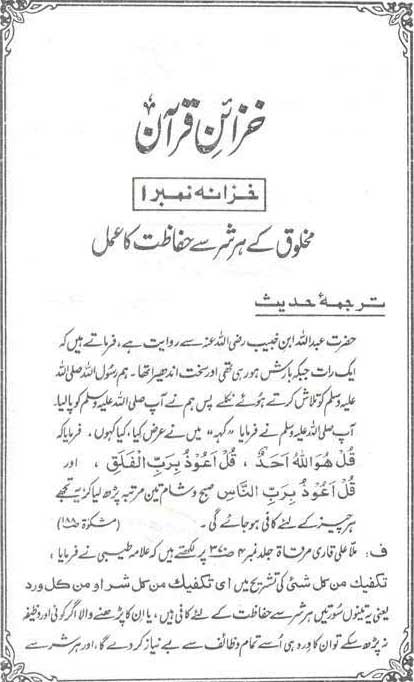 خزائنِ قرآن
خزانہ نمبر ۱
مخلوق کے ہر شر سے حفاظت کا عمل
ترجمۂ حدیث
حضرت عبداللہ ابن خبیب رضی اللہ عنہ سے روایت ہے، فرماتے ہیں کہ
ایک رات جبکہ بارش ہو رہی تھی اور سخت اندھیرا تھا۔ ہم رسول اللہ صلی اللہ
علیہ وسلم کو تلاش کرتے ہوئے نکلے پس ہم نے آپ صلی اللہ علیہ وسلم کو پالیا۔
آپ صلی اللہ علیہ وسلم نے فرمایا "کہہ" میں نے عرض کیا، کیا کہوں۔ فرمایا کہ
قُلْ هُوَ اللّٰهُ اَحَدٌ، قُلْ اَعُوْذُ بِرَبِّ الْفَلَقِ، اور
قُلْ اَعُوْذُ بِرَبِّ النَّاسِ صبح و شام تین مرتبہ پڑھ لیا کر یہ تجھے
ہر چیز کے لئے کافی ہو جائے گی۔ (مشکوٰۃ ۱۸۸)
ف: ملا علی قاری مرقاۃ جلد نمبر ۴ ص ۳۷۰ پر لکھتے ہیں کہ علامہ طیبی نے فرمایا،
تکفیك من کل شئی کی تشریح میں ای تکفیك من کل شر او من کل ورد
یعنی یہ تینوں سورتیں ہر شر سے حفاظت کے لئے کافی ہیں، یا ان کا پڑھنے والا اگر کوئی اور وظیفہ
نہ پڑھ سکے تو ان کا ورد ہی اُسے تمام وظائف سے بے نیاز کر دے گا، اور ہر شر سے